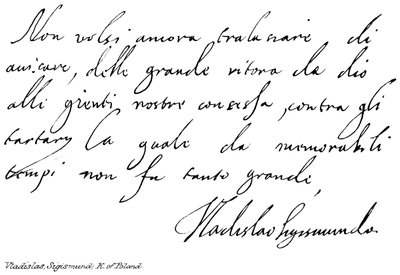 Non volsi ancora tralasciare di
avisare, delle grande vitora da dio
alli gienti nostre concessa, contra gli
tartary la quale da memorabili
tempi non fu tanto grande,
Vladislao Sigismundo
Vladislao, Sigismund, K. of Poland